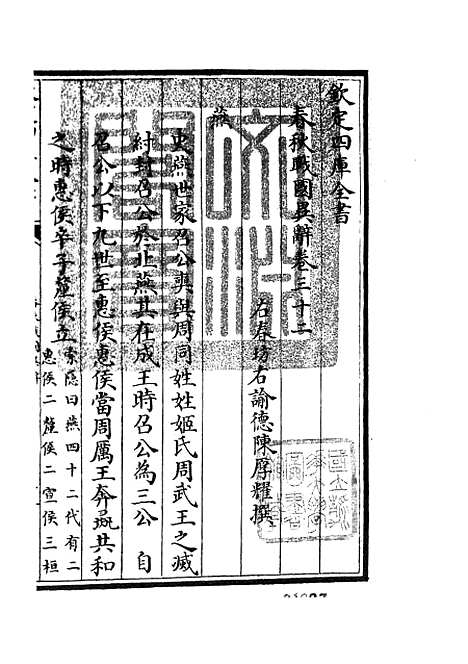 欽定四庫全書
春秋戰國異辭卷三十二
右春坊右諭德陳厚耀撰
燕
史燕世家召公奭與周同姓姓姬氏周武王之滅
紂封召公於北燕其在成王時召公為三公 自
召公以下九世至惠侯惠侯當周厲王奔彘共和
之時惠侯卒子釐侯立索隱曰燕四十二代有二
惠侯二釐侯二宣侯三桓